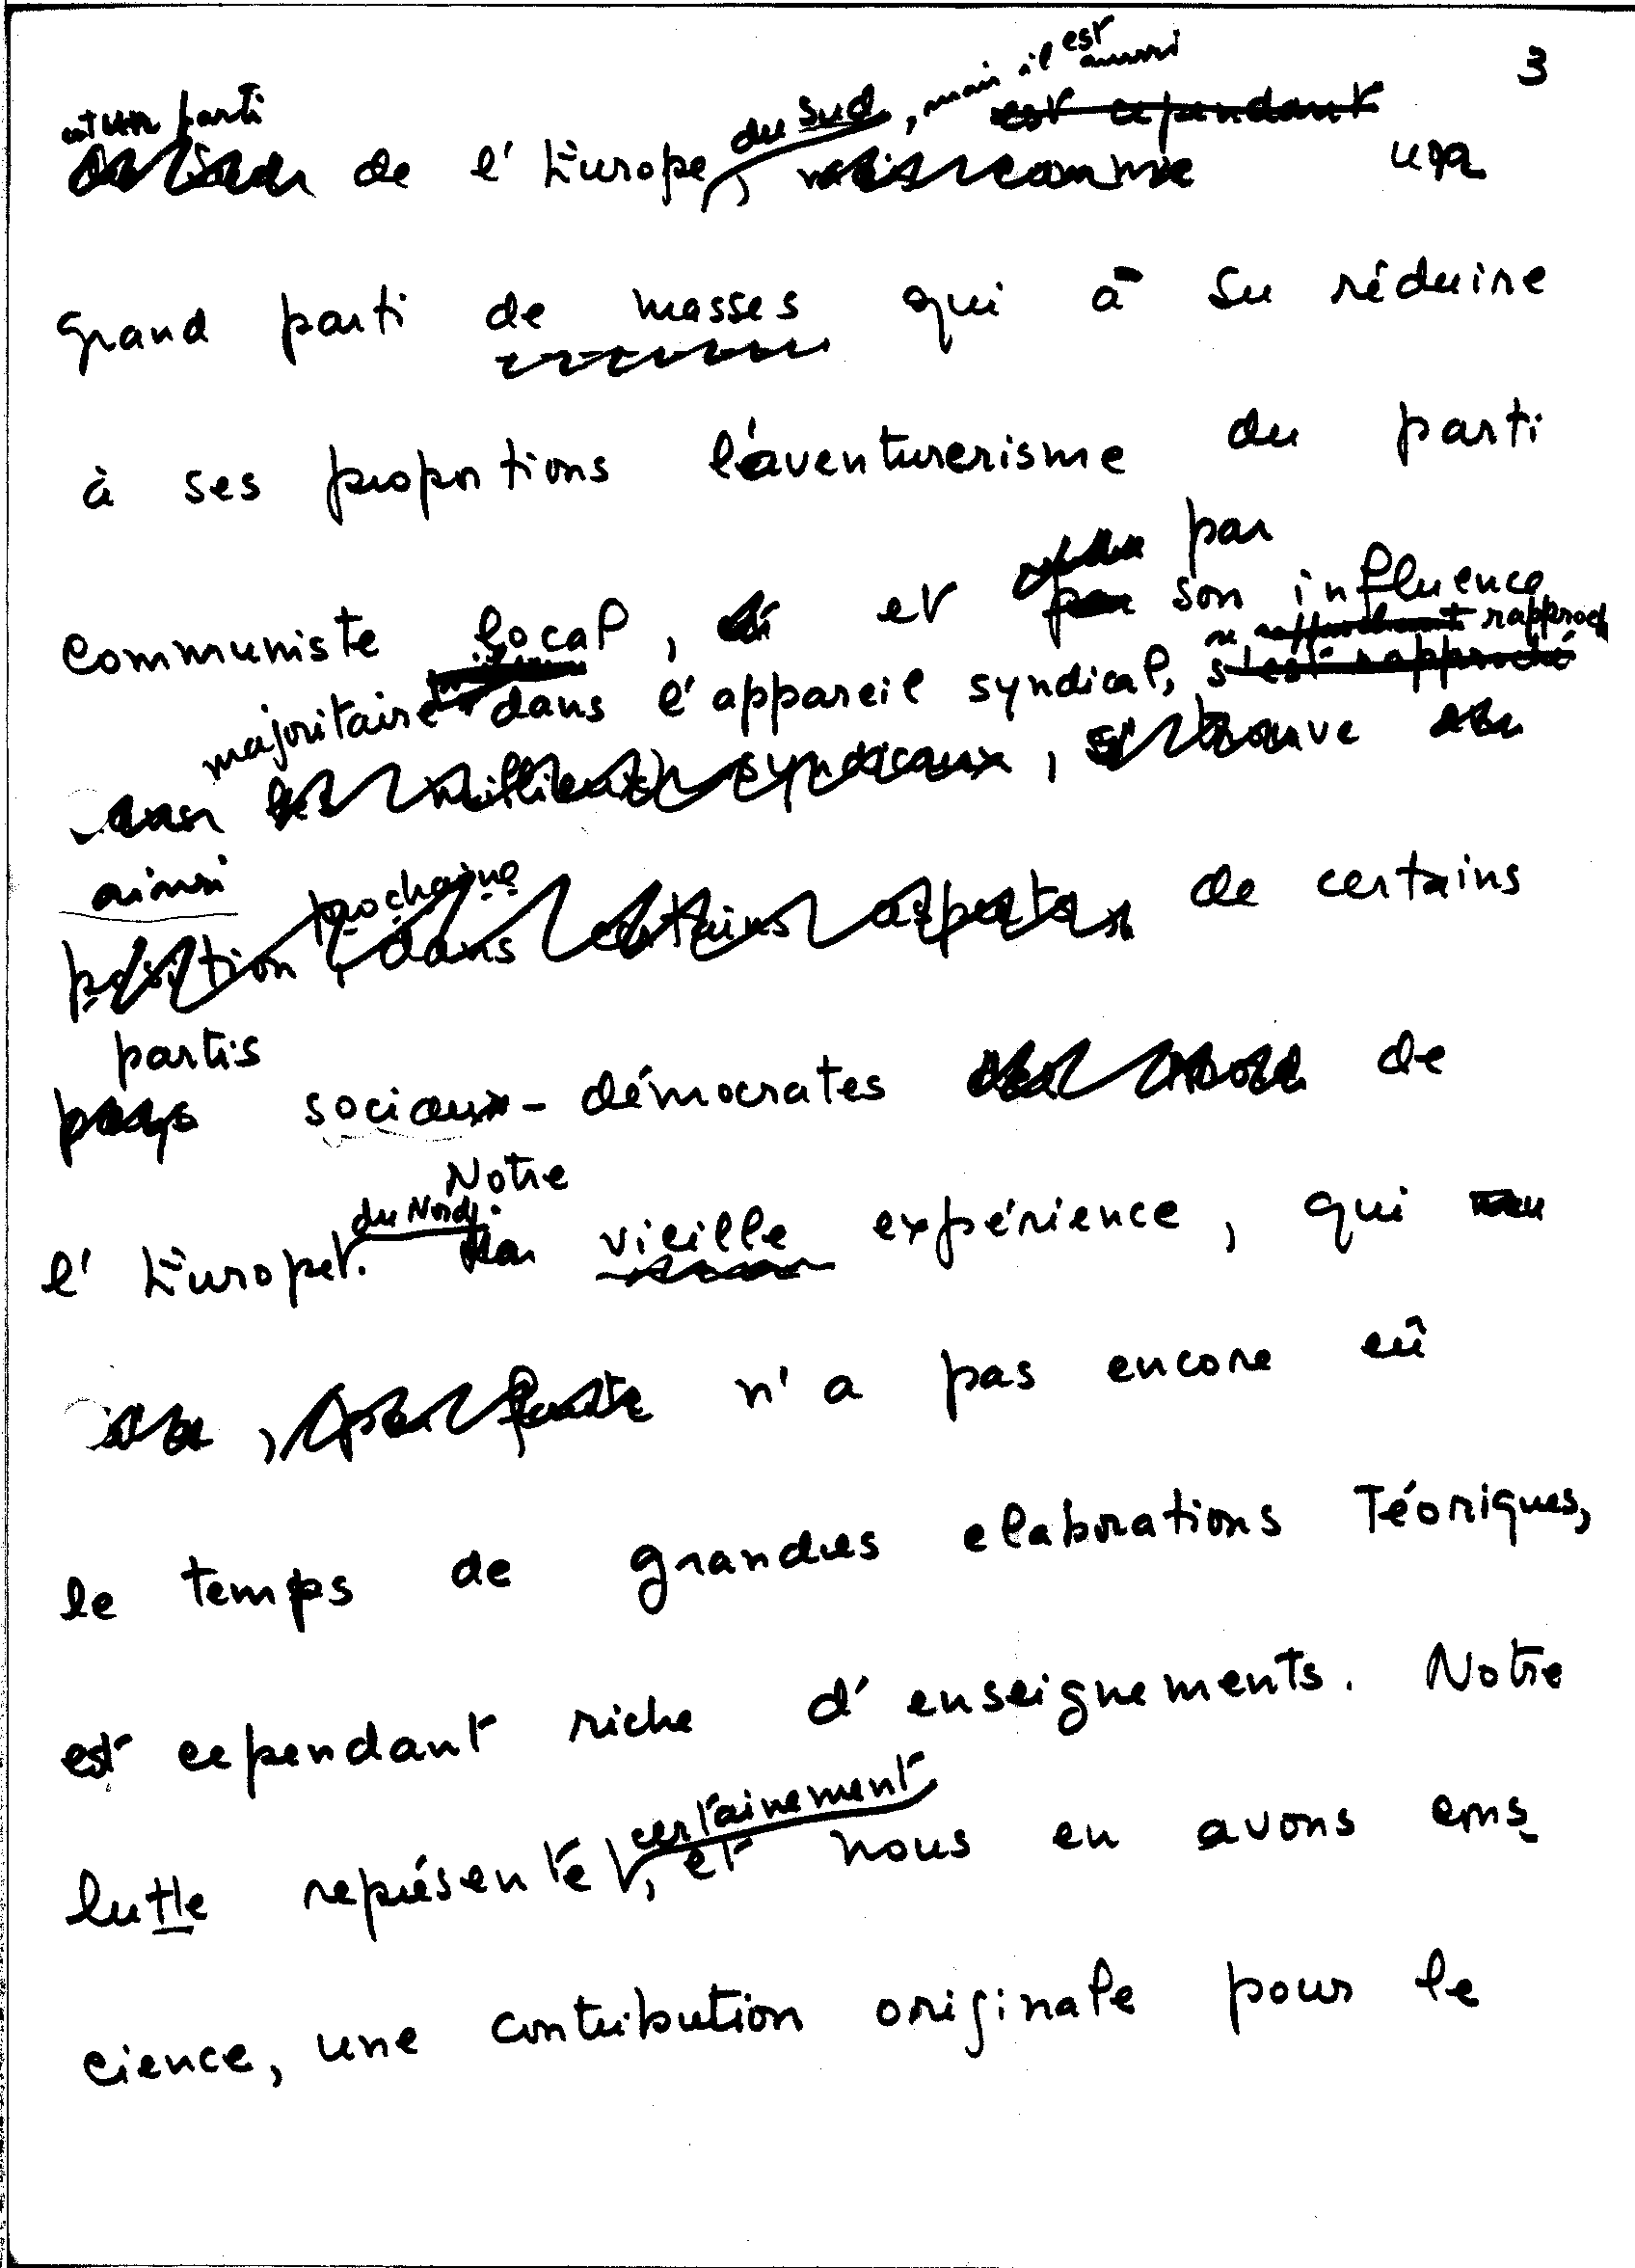 3
est un parti de l'Europe du Sud, mais il est aussi un
grand parti de masses qui à su réduire
à ses proportions l'aventurerisme du parti
communiste local, et par son influence
majoritaire dans l'appareil syndical, se rapproch
ainsi de certains
partis sociaux-démocrates de
l'Europe du Nord. Notre vieille expérience, qui
n'a pas encore eû
le temps de grandes elaborations téoriques,
est cependant riche d'enseignements. Notre
lutte représente certainement, et nous en avons cons
cience, une contribution originale pour le